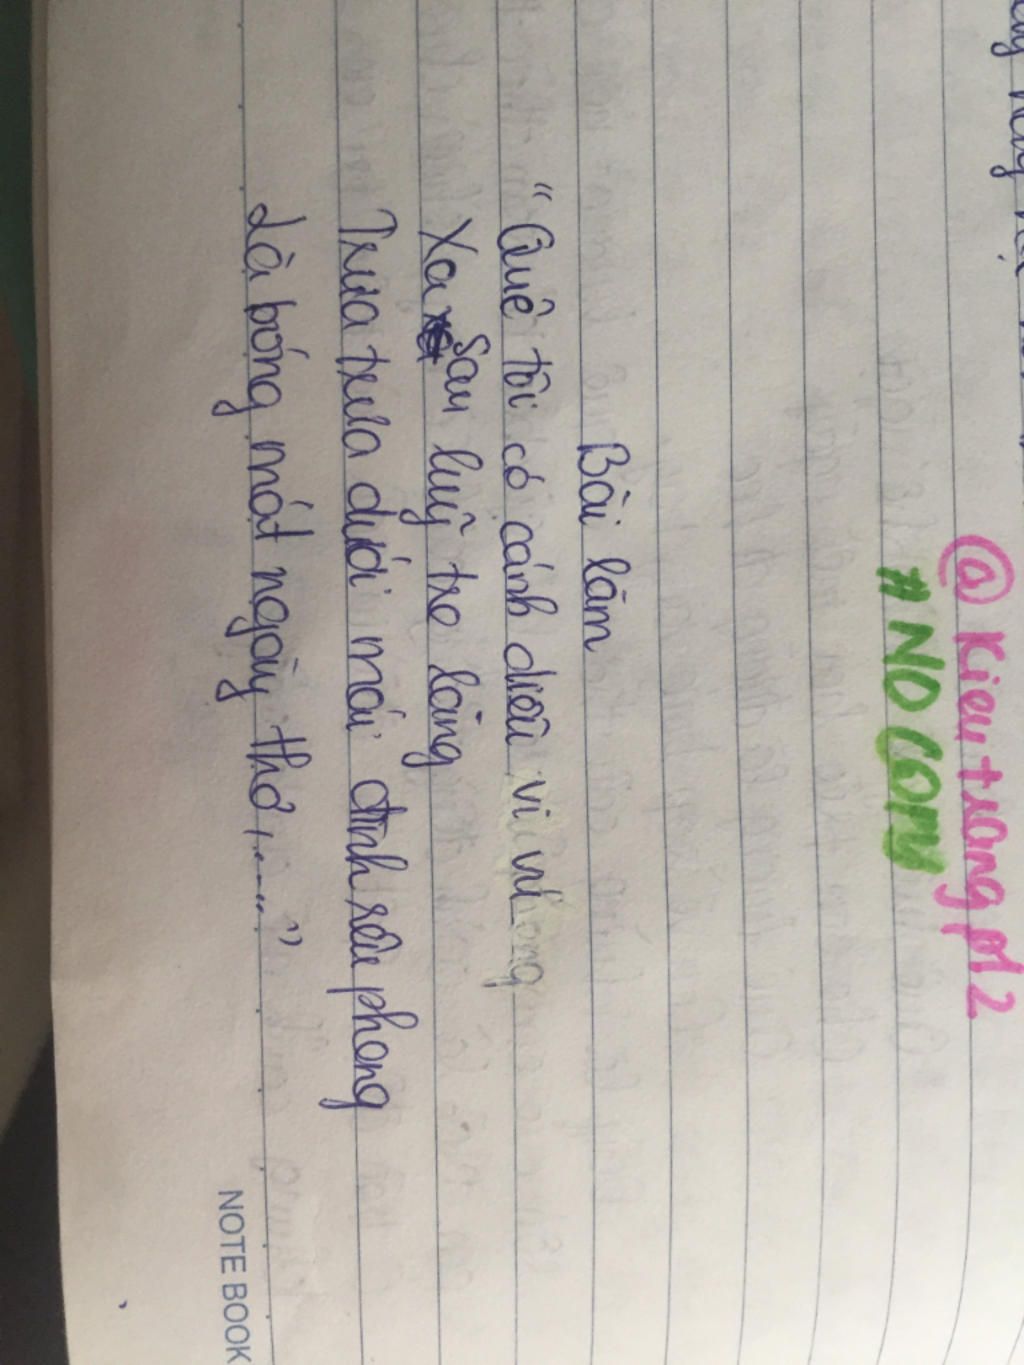 @ Kieu trang pt 2
# NO COPY
Bài làm
"Quê tôi có cánh diều vi vu
Xa sau luỹ tre làng
Trưa trưa dưới mái đình rêu phong
Là bóng mát ngày thơ,...."
NOTE BOOK